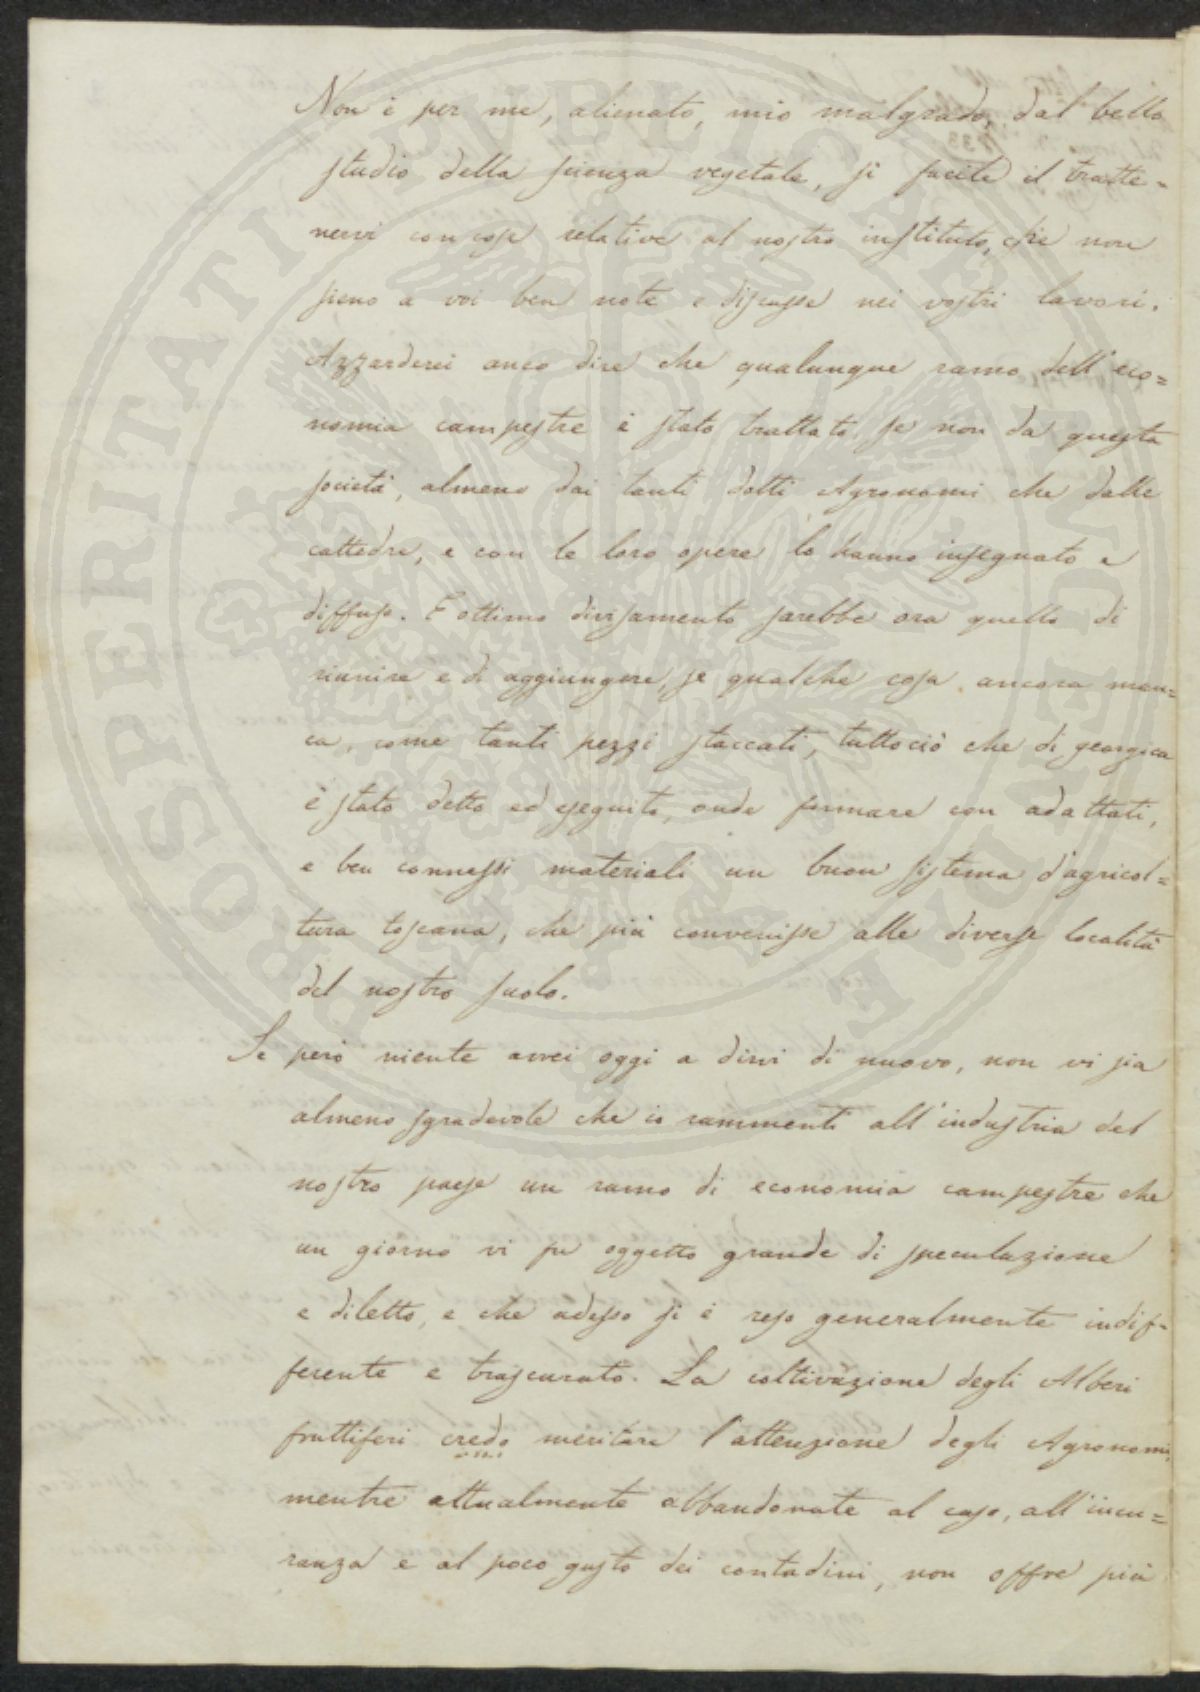 Non è per me, alienato, mio malgrado, dal bello
studio della scienza vegetale, sì facile il tratte=
nervi con cose relative al nostro instituto, che non
sieno a voi ben note e discusse nei vostri lavori.
Azzarderei anco dire che qualunque ramo dell'eco=
nomia campestre è stato trattato, se non da questa
società, almeno dai tanti dotti Agronomi che dalle
cattedre, e con le loro opere lo hanno insegnato e
diffuso. E ottimo divisamento sarebbe ora quello di
riunire e di aggiungere, se qualche cosa ancora man=
ca, come tanti pezzi staccati, tuttociò che di georgica
è stato detto ed eseguito, onde formare con adattati,
e ben connessi materiali un buon sistema d'agricol=
tura toscana, che più convenisse alle diverse località
del nostro suolo.
Se però niente avrei oggi a dirvi di nuovo, non vi sia
almeno sgradevole che io rammenti all'industria del
nostro paese un ramo di economia campestre che
un giorno vi fu oggetto grande di speculazione
e diletto, e che adesso si è reso generalmente indif=
ferente e trascurato. La coltivazione degli Alberi
fruttiferi credo meritare l'attenzione degli Agronomi,
mentre attualmente abbandonate al caso, all'incu=
ranza e al poco gusto dei contadini, non offre più
PROSPERITATI PVBLICAE AVGENDAE